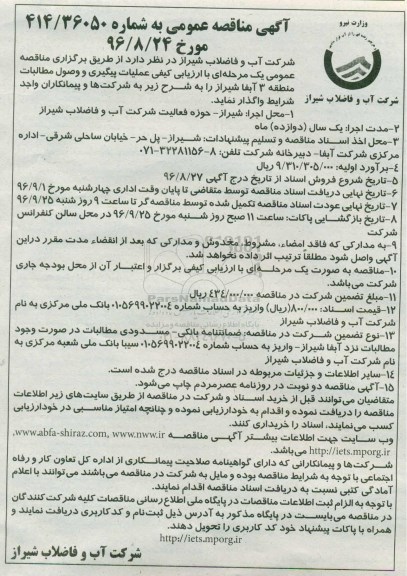 وزارت نیرو
شرکت آب و فاضلاب شیراز
آگهی مناقصه عمومی به شماره ۴۱۴/۳۶۰۵۰
مورخ ۹۶/۸/۲۴
شرکت آب و فاضلاب شیراز در نظر دارد از طریق برگزاری مناقصه
عمومی یک مرحله‌ای با ارزیابی کیفی عملیات پیگیری و وصول مطالبات
منطقه ۳ آبفا شیراز را به شرح زیر به شرکت‌ها و پیمانکاران واجد
شرایط واگذار نماید.
۱-محل اجرا: شیراز- حوزه فعالیت شرکت آب و فاضلاب شیراز
۲-مدت اجرا: یک سال (دوازده) ماه
۳-محل اخذ اسناد مناقصه و تسلیم پیشنهادات: شیراز- پل حر- خیابان ساحلی شرقی- اداره
مرکزی شرکت آبفا- دبیرخانه شرکت تلفن: ۸-۳۲۲۸۱۱۵۶-۰۷۱
۴-برآورد اولیه: ۹/۳۱۰/۳۰۵/۰۰۰ ریال
۵-تاریخ شروع فروش اسناد از تاریخ درج آگهی ۹۶/۸/۲۷
۶-تاریخ نهایی دریافت اسناد مناقصه توسط متقاضی تا پایان وقت اداری چهارشنبه مورخ ۹۶/۹/۱
۷-تاریخ نهایی عودت اسناد مناقصه تکمیل شده توسط مناقصه گر تا ساعت ۹ روز شنبه ۹۶/۹/۲۵
۸-تاریخ بازگشایی پاکات: ساعت ۱۱ صبح روز شنبه مورخ ۹۶/۹/۲۵ در محل سالن کنفرانس
شرکت
۹-به مدارکی که فاقد امضاء، مشروط، مخدوش و مدارکی که بعد از انقضاء مدت مقرر در این
آگهی واصل شود مطلقا ترتیب اثر داده نخواهد شد.
۱۰-مناقصه به صورت یک مرحله‌ای با ارزیابی کیفی برگزار و اعتبار آن از محل بودجه جاری
شرکت می‌باشد.
۱۱-مبلغ تضمین شرکت در مناقصه ۴۳۴/۰۰۰/۰۰۰ ریال
۱۲-قیمت اسناد: ۸۰۰/۰۰۰(ریال) واریز به حساب شماره ۰۱۰۵۶۹۹۰۲۲۰۰۴ بانک ملی مرکزی به نام
شرکت آب و فاضلاب شیراز
۱۳-نوع تضمین شرکت در مناقصه: ضمانتنامه بانکی- مسدودی مطالبات در صورت وجود
مطالبات نزد آبفا شیراز- واریز به حساب شماره ۰۱۰۵۶۹۹۰۲۲۰۰۴ سیبا بانک ملی شعبه مرکزی به
نام شرکت آب و فاضلاب شیراز
۱۴-سایر اطلاعات و جزئیات مربوطه در اسناد مناقصه درج شده است.
۱۵-آگهی مناقصه دو نوبت در روزنامه عصرمردم چاپ می‌شود.
متقاضیان می‌توانند قبل از خرید اسناد و شرکت در مناقصه از طریق سایت‌های زیر اطلاعات
مناقصه را دریافت نموده و اقدام به خودارزیابی نموده و چنانچه امتیاز مناسبی در خودارزیابی
کسب می‌نمایند، اسناد را خریداری کنند.
وب سایت جهت اطلاعات بیشتر آگهی مناقصه www.abfa-shiraz.com, www.nww.ir,
http://iets.mporg.ir می‌باشد.
شرکت‌ها و پیمانکارانی که دارای گواهینامه صلاحیت پیمانکاری از اداره کل تعاون کار و رفاه
اجتماعی با توجه به شرایط مناقصه بوده و مایل به شرکت در مناقصه می‌باشند می‌توانند با اعلام
آمادگی کتبی نسبت به دریافت اسناد مناقصه اقدام نمایند.
با توجه به الزام ثبت اطلاعات مناقصات در پایگاه ملی اطلاع رسانی مناقصات کلیه شرکت کنندگان
در مناقصه می‌بایست در پایگاه مذکور به آدرس ذیل ثبت‌نام و کد کاربری دریافت نمایند و
همراه با پاکات پیشنهاد خود کد کاربری را تحویل دهند.
http://iets.mporg.ir
شرکت آب و فاضلاب شیراز